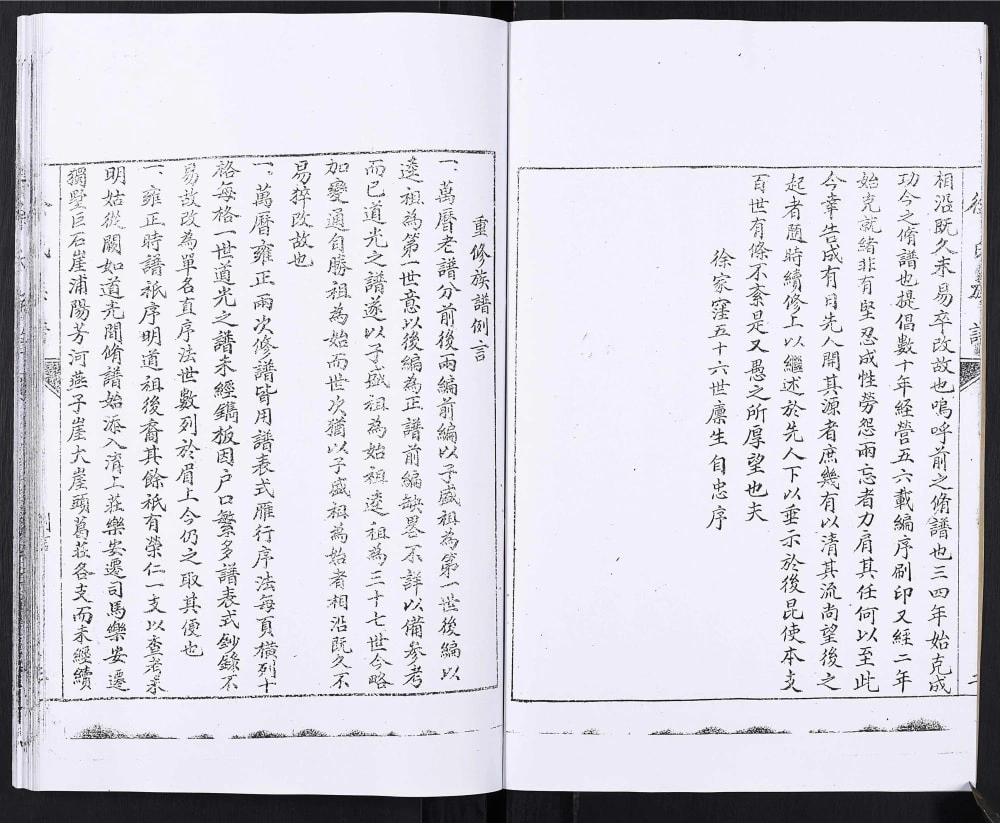 相沿既久未易卒改故也嗚呼前之脩譜也三四年始克成
功今之脩譜也提倡數十年経營五六載編序刷印又經二年
始克就緒非有堅忍成性勞怨兩忘者力肩其任何以至此
今幸告成有日先人開其源者庶幾有以清其流尚望後之
起者隨時續修上以繼述於先人下以垂示於後昆使本支
百世有條不紊是又愚之所厚望也夫
徐家窪五十六世廩生自忠序
重修族譜例言
一、萬曆老譜分前後兩編前編以子盛祖為第一世後編以
逵祖為第一世意以後編為正譜前編缺畧不詳以備參考
而已道光之譜遂以子盛祖為始祖逵祖為三十七世今略
加變通自勝祖為始而世次猶以子盛祖為始者相沿既久不
易猝改故也
一、萬曆雍正兩次修譜皆用譜表式雁行序法每頁横列十
格每格一世道光之譜未經鐫板因户口繁多譜表式鈔錄不
易故改為單名直序法世數列於眉上今仍之取其便也
一、雍正時譜祇序明道祖後裔其餘祇有榮仁一支以查考未
明姑從闕如道光間脩譜始添入湇上莊樂安遷司馬樂安遷
獨墅巨石崖浦陽芳河燕子崖大崖頭葛莊各支而未經續